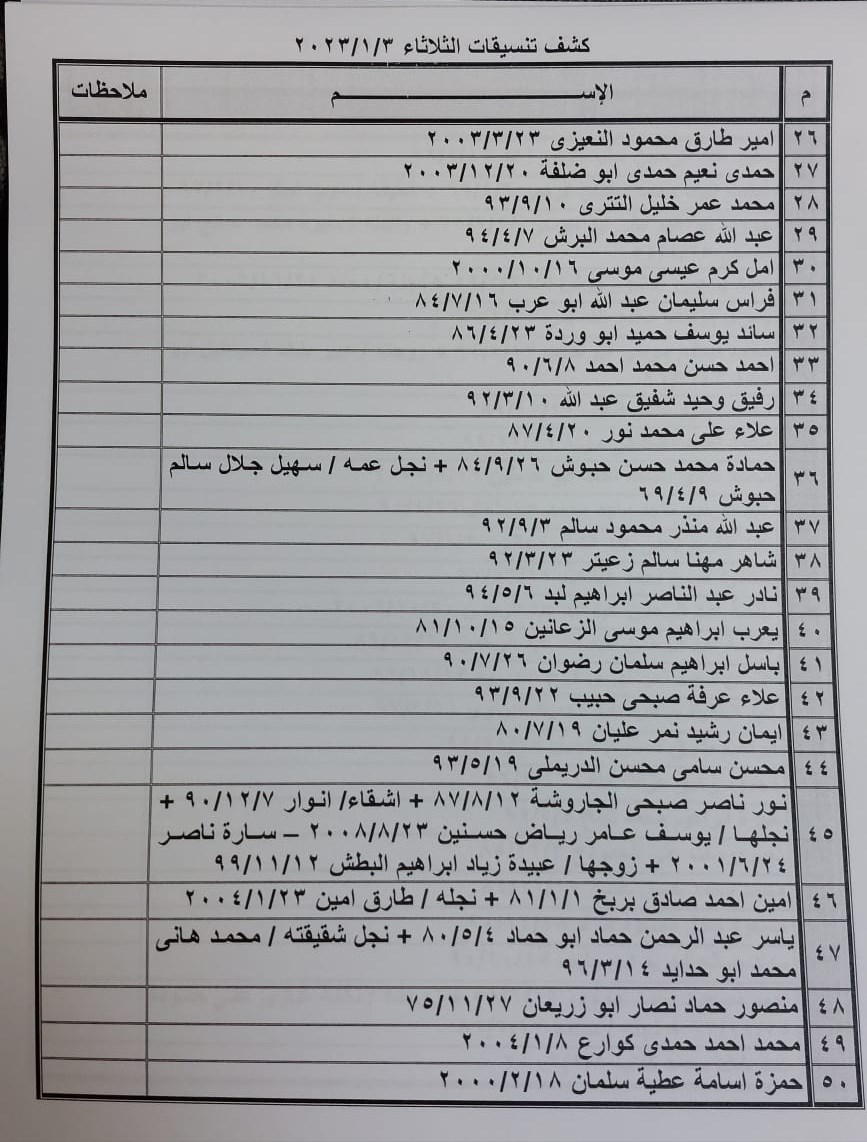 كشف تنسيقات الثلاثاء ٢٠٢٣/١/٣
م الإســـــــــــــــم ملاحظات
٢٦ امير طارق محمود النعيزى ٢٠٠٣/٣/٢٣
٢٧ حمدى نعيم حمدى ابو ضلفة ٢٠٠٣/١٢/٢٠
٢٨ محمد عمر خليل التترى ٩٣/٩/١٠
٢٩ عبد الله عصام محمد البرش ٩٤/٤/٧
٣٠ امل كرم عيسى موسى ٢٠٠٠/١٠/١٦
٣١ فراس سليمان عبد الله ابو عرب ٨٤/٧/١٦
٣٢ ساند يوسف حميد ابو وردة ٨٦/٤/٢٣
٣٣ احمد حسن محمد احمد ٩٠/٦/٨
٣٤ رفيق وحيد شفيق عبد الله ٩٢/٣/١٠
٣٥ علاء على محمد نور ٨٧/٤/٢٠
٣٦ حمادة محمد حسن حبوش ٨٤/٩/٢٦ + نجل عمه / سهيل جلال سالم
حبوش ٦٩/٤/٩
٣٧ عبد الله منذر محمود سالم ٩٢/٩/٣
٣٨ شاهر مهنا سالم زعيتر ٩٢/٣/٢٣
٣٩ نادر عبد الناصر ابراهيم لبد ٩٤/٥/٦
٤٠ يعرب ابراهيم موسى الزعانين ٨١/١٠/١٥
٤١ باسل ابراهيم سلمان رضوان ٩٠/٧/٢٦
٤٢ علاء عرفة صبحى حبيب ٩٣/٩/٢٢
٤٣ ايمان رشيد نمر عليان ٨٠/٧/١٩
٤٤ محسن سامى محسن الدريملى ٩٣/٥/١٩
نور ناصر صبحى الجاروشة ٨٧/٨/١٢ + اشقاء/ انوار ٩٠/١٢/٧ +
٤٥ نجلها / يوسف عامر رياض حسنين ٢٠٠٨/٨/٢٣ – سارة ناصر
٢٠٠١/٦/٢٤ + زوجها / عبيدة زياد ابراهيم البطش ٩٩/١١/١٢
٤٦ امين احمد صادق بربخ ٨١/١/١ + نجله / طارق امين ٢٠٠٤/١/٢٣
٤٧ ياسر عبد الرحمن حماد ابو حماد ٨٠/٥/٤ + نجل شقيقته / محمد هانى
محمد ابو حدايد ٩٦/٣/١٤
٤٨ منصور حماد نصار ابو زريعان ٧٥/١١/٢٧
٤٩ محمد احمد حمدى كوارع ٢٠٠٤/١/٨
٥٠ حمزة اسامة عطية سلمان ٢٠٠٠/٢/١٨